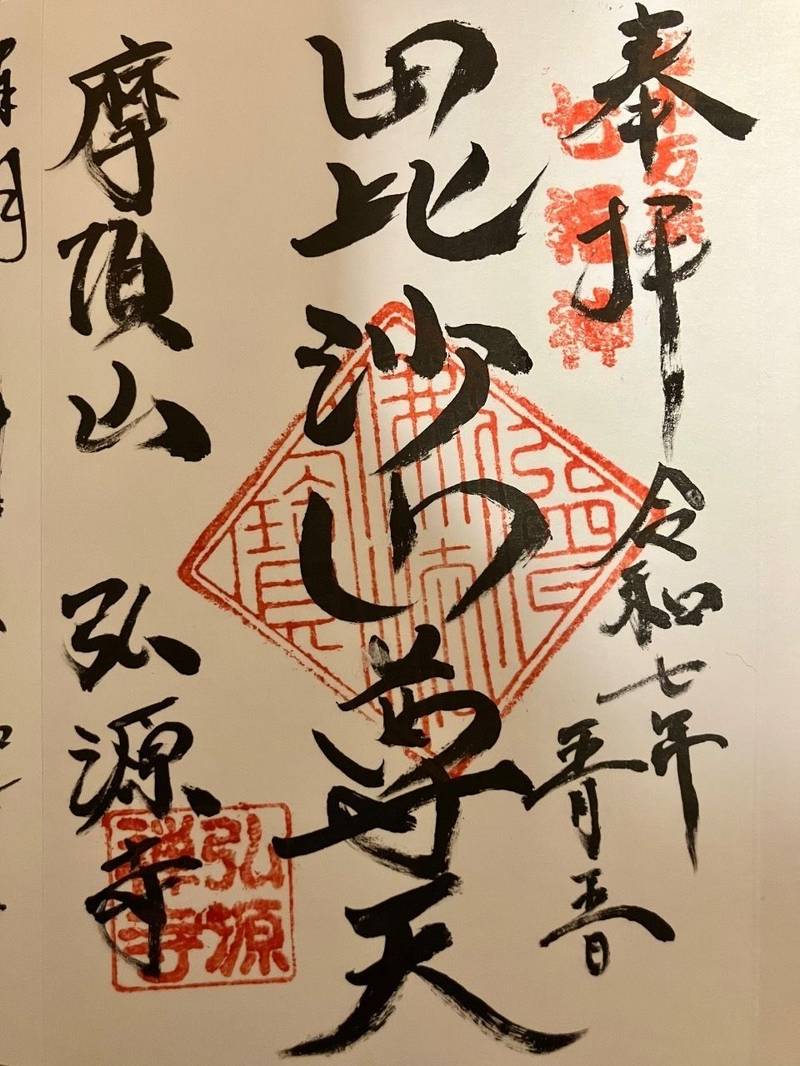 奉拝
令和七年
五月五日
七福神
毘沙門尊天
摩頂山 弘源寺
弘源
禪寺